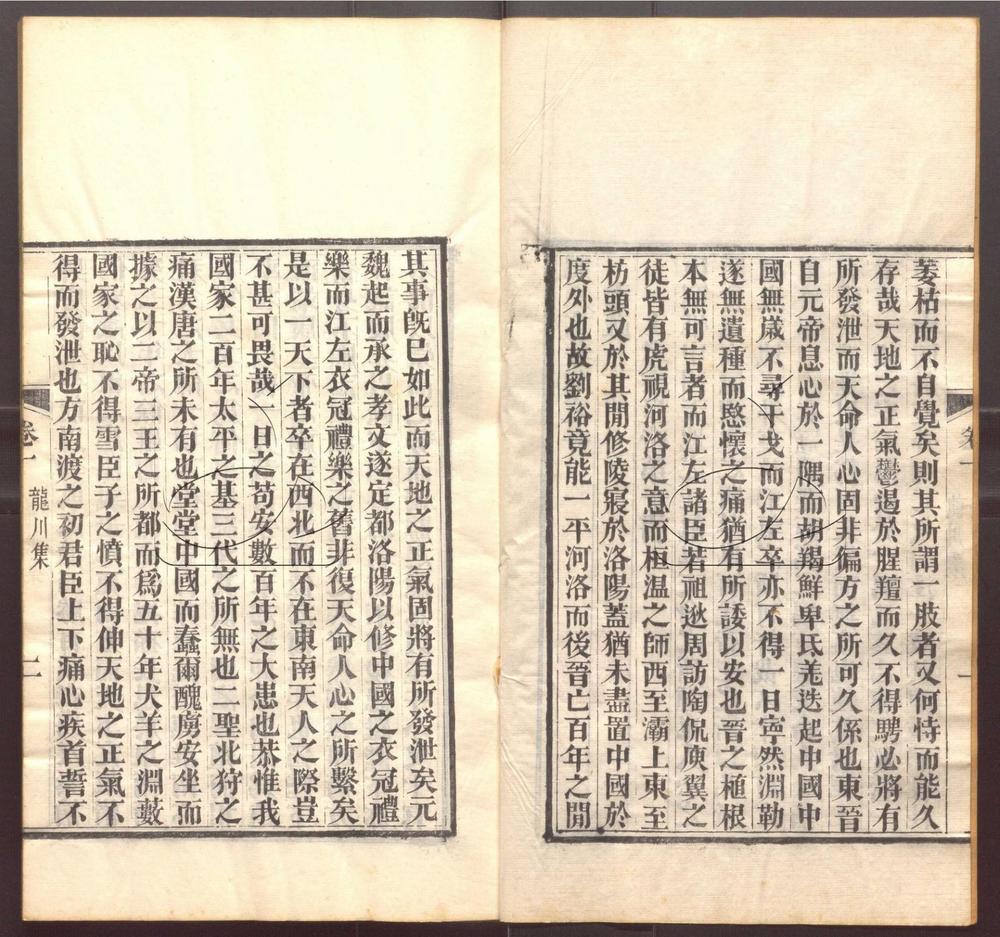 萎枯而不自覺矣則其所謂一肢者又何恃而能久
存哉天地之正氣鬱遏於腥羶而久不得騁必將有
所發泄而天命人心固非偏方之所可久係也東晉
自元帝息心於一隅而胡羯鮮卑氐羌迭起中國中
國無歲不尋干戈而江左卒亦不得一日寧然淵勒
遂無遺種而愍懷之痛猶有所諉以安也晉之植根
本無可言者而江左諸臣若祖逖周訪陶侃庾翼之
徒皆有虎視河洛之意而桓温之師西至灞上東至
枋頭又於其閒修陵寢於洛陽蓋猶未盡置中國於
度外也故劉裕竟能一平河洛而後晉亡百年之閒
其事旣巳如此而天地之正氣固將有所發泄矣元
魏起而承之孝文遂定都洛陽以修中國之衣冠禮
樂而江左衣冠禮樂之舊非復天命人心之所繫矣
是以一天下者卒在西北而不在東南天人之際豈
不甚可畏哉一日之苟安數百年之大患也恭惟我
國家二百年太平之基三代之所無也二聖北狩之
痛漢唐之所未有也堂堂中國而蠢爾醜虜安坐而
據之以二帝三王之所都而爲五十年犬羊之淵藪
國家之恥不得雪臣子之憤不得伸天地之正氣不
得而發泄也方南渡之初君臣上下痛心疾首誓不
卷一
龍川集
二